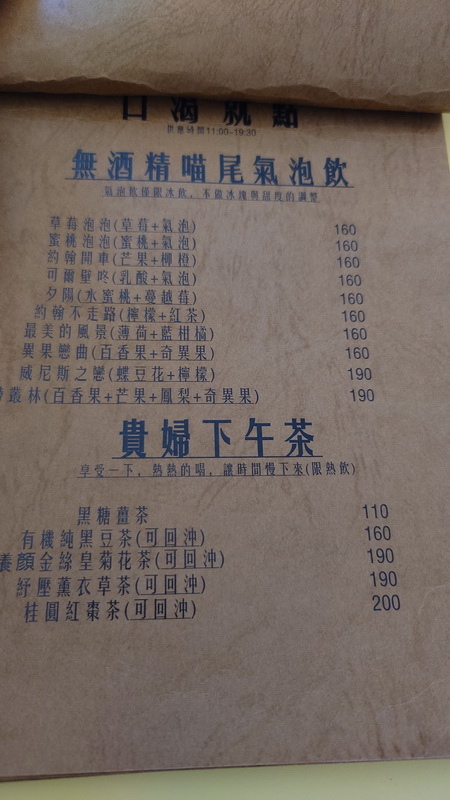 口渴就點
供應時間11:00-19:30
無酒精喵尾氣泡飲
氣泡飲僅限冰飲，不做冰塊與甜度的調整
草莓泡泡(草莓+氣泡) 160
蜜桃泡泡(蜜桃+氣泡) 160
約翰開車(芒果+柳橙) 160
可爾壁咚(乳酸+氣泡) 160
夕陽(水蜜桃+蔓越莓) 160
約翰不走路(檸檬+紅茶) 160
最美的風景(薄荷+藍柑橘) 160
異果戀曲(百香果+奇異果) 160
威尼斯之戀(蝶豆花+檸檬) 190
叢林(百香果+芒果+鳳梨+奇異果) 190
貴婦下午茶
享受一下，熱熱的喝，讓時間慢下來(限熱飲)
黑糖薑茶 110
有機純黑豆茶(可回沖) 160
養顏金絲皇菊花茶(可回沖) 190
紓壓薰衣草茶(可回沖) 190
桂圓紅棗茶(可回沖) 200